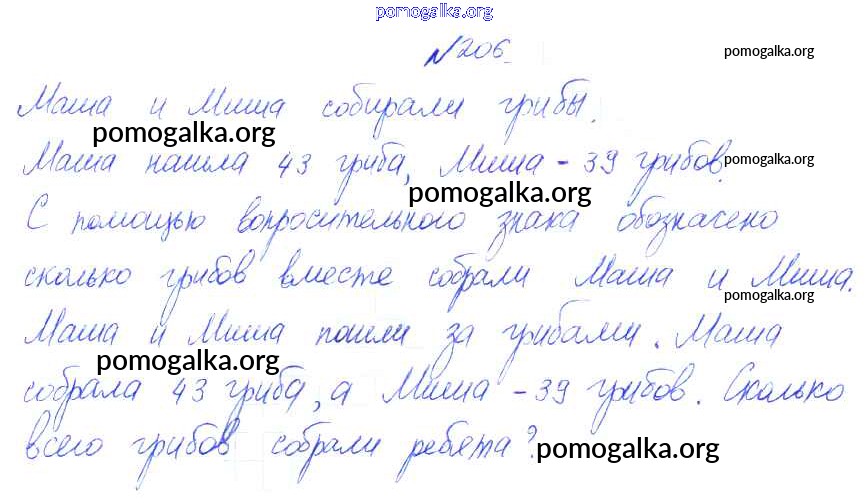 pomogalka.org
№206
pomogalka.org
Маша и Миша собирали грибы.
pomogalka.org
Маша нашла 43 гриба, Миша - 39 грибов.
pomogalka.org
pomogalka.org
С помощью вопросительного знака обозначено
сколько грибов вместе собрали Маша и Миша.
pomogalka.org
Маша и Миша пошли за грибами. Маша
pomogalka.org
собрала 43 гриба, а Миша - 39 грибов. Сколько
всего грибов собрали ребята?
pomogalka.org